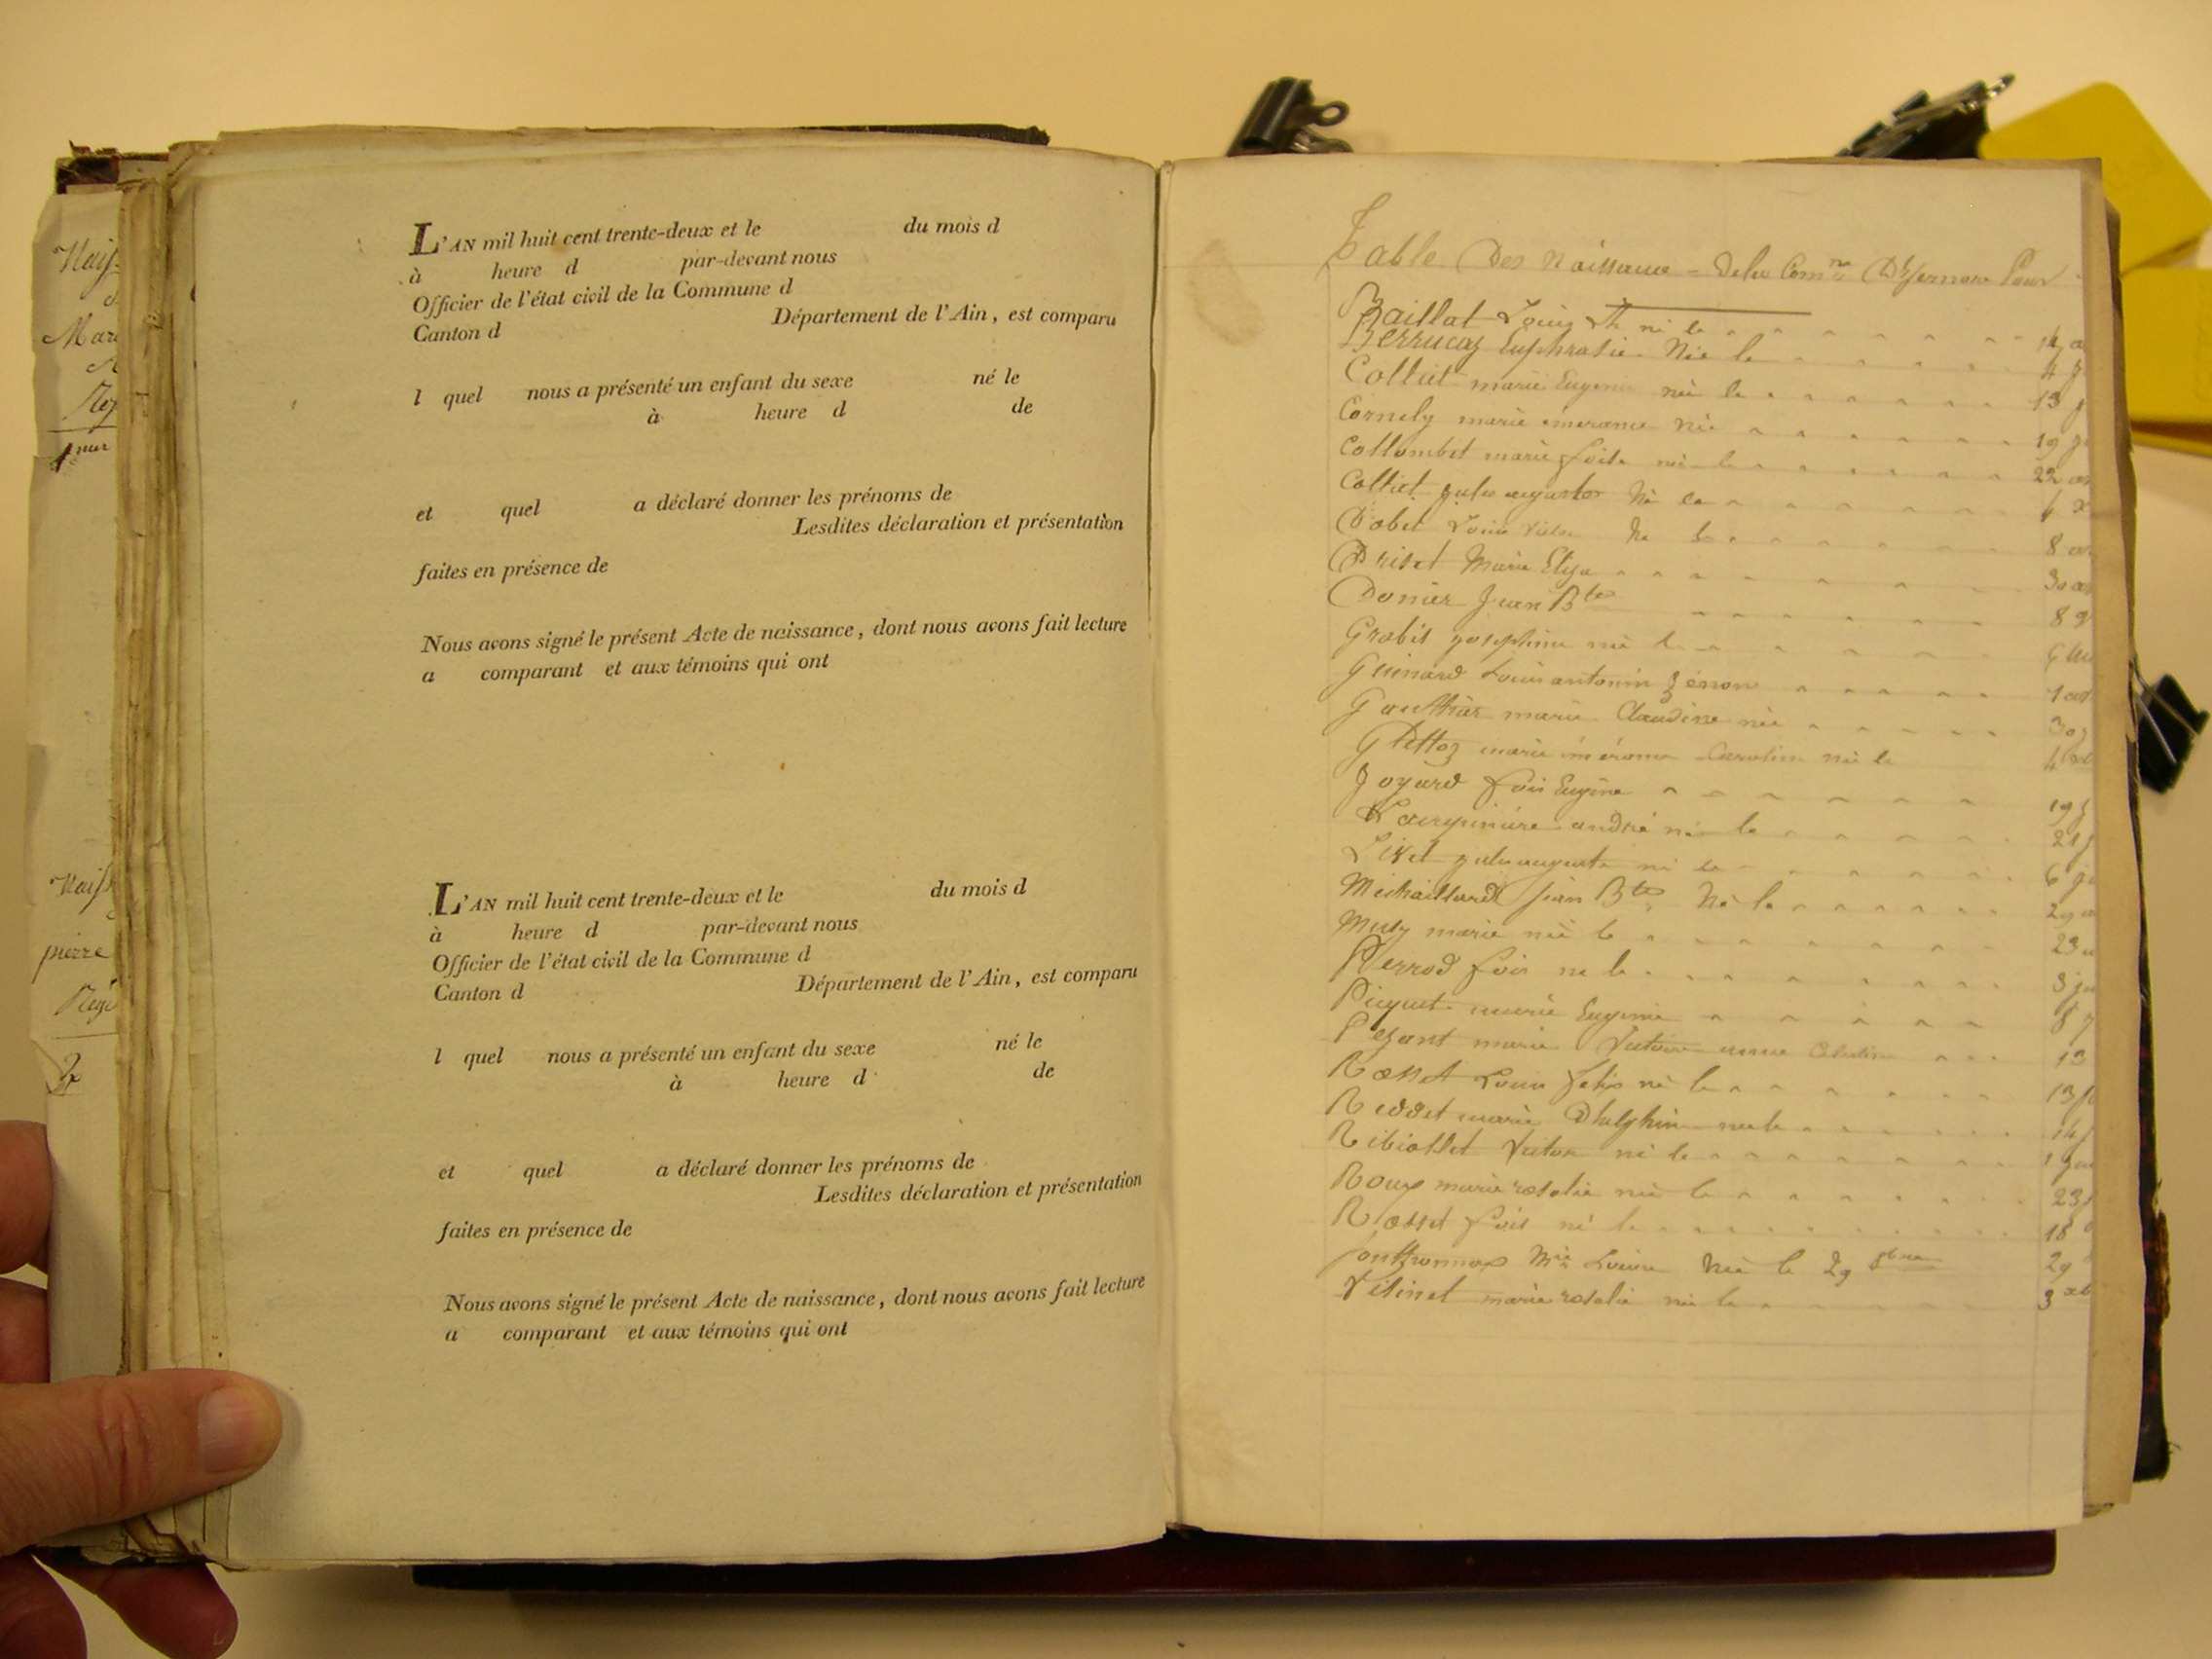 Naiss
Mar
1
Naiss
pierre
2
L'AN mil huit cent trente-deux et le du mois d
à heure d par-devant nous
Officier de l'état civil de la Commune d
Canton d Département de l'Ain, est comparu
l quel nous a présenté un enfant du sexe né le
à heure d de
et quel a déclaré donner les prénoms de
Lesdites déclaration et présentation
faites en présence de
Nous avons signé le présent Acte de naissance, dont nous avons fait lecture
a comparant et aux témoins qui ont
L'AN mil huit cent trente-deux et le du mois d
à heure d par-devant nous
Officier de l'état civil de la Commune d
Canton d Département de l'Ain, est comparu
l quel nous a présenté un enfant du sexe né le
à heure d de
et quel a déclaré donner les prénoms de
Lesdites déclaration et présentation
faites en présence de
Nous avons signé le présent Acte de naissance, dont nous avons fait lecture
a comparant et aux témoins qui ont
Table Des Naissance Dela Comne Pour
Baillat Louis né le 14
Berrucaz Euphrasie Née le 4
Colliat marie Eugenie née le 13
Cornely marie émerance née 19
Collombet marie née le 22
Colliat jules Né le
Dobet Louis Victor Né le 8
Driset Marie Elisa 30
Donier Jean Bte 8
Grobit josephine née l 6
Guinard Louis antonin Zénon 1
Gauthier marie Claudine née 30
Glettoz marie émérance Caroline née le 4
Joyard fois Eugène 19
andré né le 21
Livet jules auguste né le 6
Michaillard jean Bte Né le 29
Musy marie née le 23
Perrod fois né le 3
Picquet marie Eugenie 8
Pezant marie Victoire 13
Rosset Louis né le 13
Reddet marie Dhelphine née le 14
Ribiollet Victor né le 1
Roux marie rosalie née le 23
Rosset fois né le 18
Mie Louise Née le 29 8bre 29
Vesinet marie rosalie née le 3